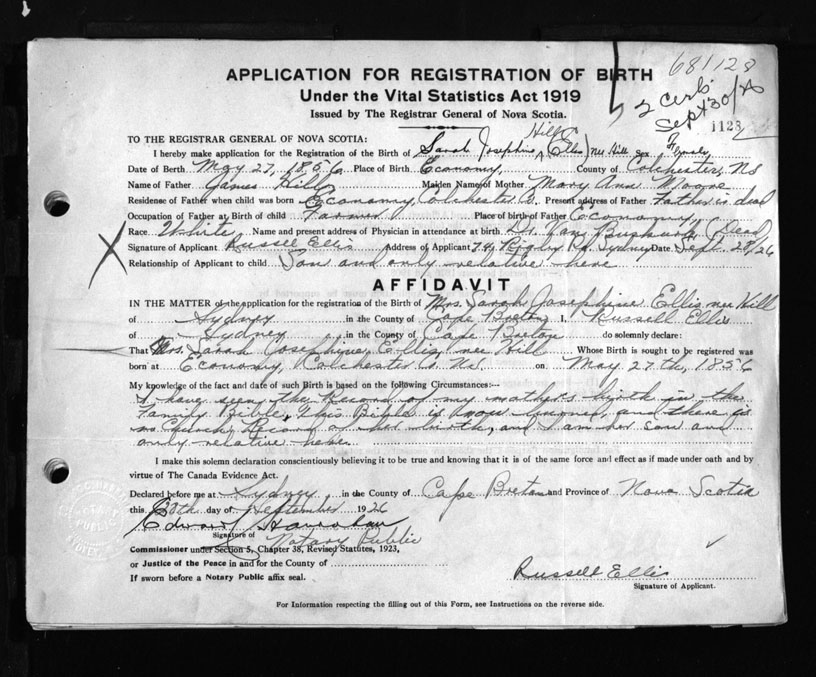 681128
2 Certs.
Sept 30/26
1128
APPLICATION FOR REGISTRATION OF BIRTH
Under the Vital Statistics Act 1919
Issued by The Registrar General of Nova Scotia.
TO THE REGISTRAR GENERAL OF NOVA SCOTIA:
Hill
I hereby make application for the Registration of the Birth of Sarah Josephine (Ellis) nee Hill Sex Female
Date of Birth May 27, 1856 Place of Birth Economy, County of Colchester, NS
Name of Father James Hill Maiden Name of Mother Mary Ann Moore
Residence of Father when child was born Economy, Colchester Co. Present address of Father Father is dead
Occupation of Father at Birth of child Farmer Place of birth of Father Economy,
Race White Name and present address of Physician in attendance at birth Dr. (Dead)
Signature of Applicant Russell Ellis Address of Applicant 74 Rigby Rd. Sydney Date Sept. 28/26
Relationship of Applicant to child Son and only relative here
AFFIDAVIT
IN THE MATTER of the application for the registration of the Birth of Mrs. Sarah Josephine Ellis nee Hill
of Sydney in the County of Cape Breton I, Russell Ellis
of Sydney in the County of Cape Breton do solemnly declare:
That Mrs. Sarah Josephine Ellis nee Hill Whose Birth is sought to be registered was
born at Economy, Colchester Co. NS. on May 27th, 1856
My knowledge of the fact and date of such Birth is based on the following Circumstances:—
I have seen the Record of my mother's birth in the
Family Bible, This Bible is now burned, and there is
no Church Record of her birth, and I am her son and
only relative here.
I make this solemn declaration conscientiously believing it to be true and knowing that it is of the same force and effect as if made under oath and by
virtue of The Canada Evidence Act.
Declared before me at Sydney, in the County of Cape Breton and Province of Nova Scotia
this 30th day of September 1926
Edward Hanrahan
Signature of
Notary Public
Commissioner under Section 5, Chapter 38, Revised Statutes, 1923,
or Justice of the Peace in and for the County of
If sworn before a Notary Public affix seal.
Russell Ellis
Signature of Applicant.
For Information respecting the filling out of this Form, see Instructions on the reverse side.